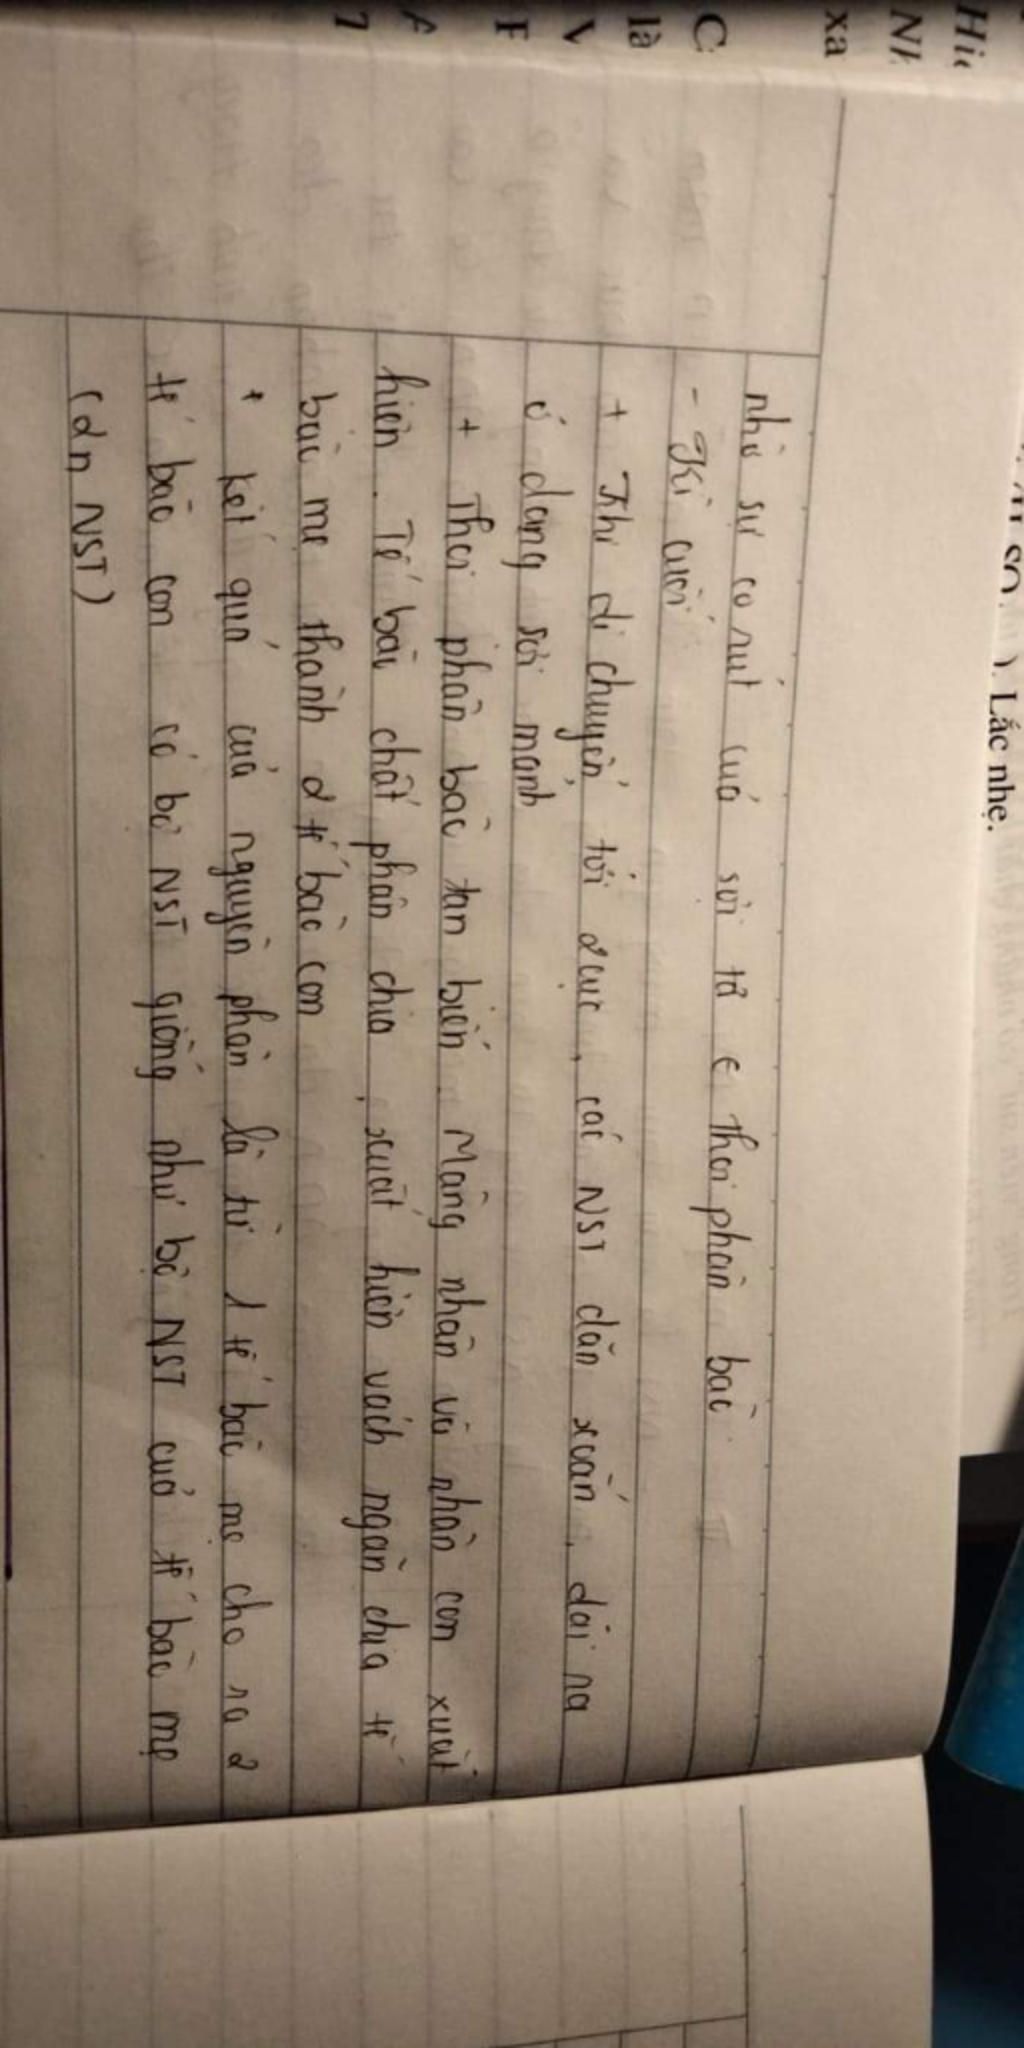 Hiệ
Nh
xa
C
là
V
F
A
7
SO
). Lắc nhẹ.
nhờ sự co rút của sợi tơ ∈ thoi phân bào
- Kì cuối
+ Khi di chuyển tới 2 cực, các NST dãn xoắn, dài ra
ở dạng sợi mảnh
+ Thoi phân bào tan biến. Màng nhân và nhân con xuất
hiện. Tế bào chất phân chia, xuất hiện vách ngăn chia tế
bào mẹ thành 2 tế bào con
+ kết quả của nguyên phân là từ 1 tế bào mẹ cho ra 2
tế bào con có bộ NST giống như bộ NST của tế bào mẹ
(2n NST)